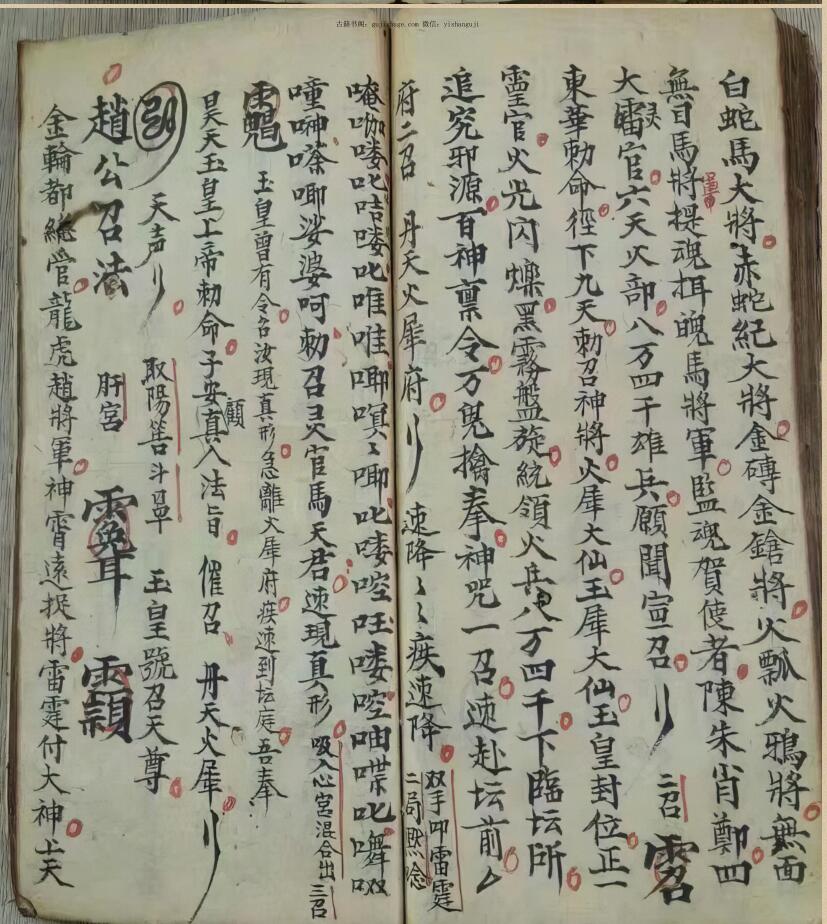 古籍书阁：gujishuge.com 微信：yishanguji
白蛇馬大將赤蛇紀大將金磚金鎗將火瓢火鴉將無面
無目馬將捉魂揖魄馬將軍監魂賀使者陳朱肖鄭四
大雷官六天火部八万四千雄兵願聞宣召
二召
東華勅命徑下九天勅召神將火犀大仙玉犀大仙玉皇封位正一
靈官火光閃爍黑霧盤旋統領火兵八万四千下臨坛所
追究邪源百神禀令万鬼擒拳神咒一召速赴坛前
府二召 丹天火犀府 速降疾速降 双手叩雷霆
二局默念
唵 喽叱咭喽叱唯唯唧嘆唧叱喽啌 喽啌 叱
唧娑婆呵勅召灵官馬天君速現真形 吸入心宮混合出 三召
玉皇曾有令召汝現真形急離火犀府疾速到坛庭吾奉
昊天玉皇上帝勅命子安真人法旨 催召 丹天火犀
顧
天声 取陽 斗罩 玉皇號召天尊
趙公召法 肝宮
金輪都總管龍虎趙將軍神霄遠捉將雷霆付大神上天